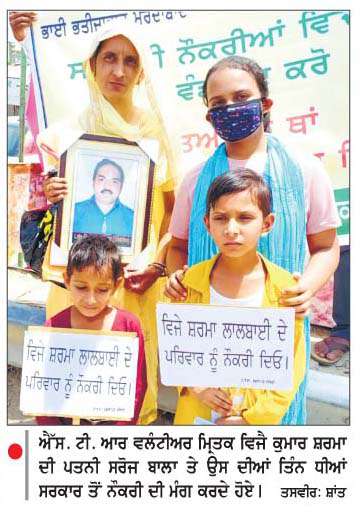 ਭਾਈ ਭਤੀਜਾਵਾਦ ਮੁਰਦਾਬਾਦ
ਨੌਕਰੀਆਂ ਵਿੱਚ
ਕਰੋ
ਥਾਂ
ਵਿਜੇ ਸ਼ਰਮਾ ਲਾਲਬਾਈ ਦੇ
ਪਰਿਵਾਰ ਨੂੰ ਨੌਕਰੀ ਦਿਓ।
ਵਿਜੇ ਸ਼ਰਮਾ ਲਾਲਬਾਈ ਦੇ
ਪਰਿਵਾਰ ਨੂੰ ਨੌਕਰੀ ਦਿਓ।
ਐੱਸ. ਟੀ. ਆਰ ਵਲੰਟੀਅਰ ਮ੍ਰਿਤਕ ਵਿਜੈ ਕੁਮਾਰ ਸ਼ਰਮਾ
ਦੀ ਪਤਨੀ ਸਰੋਜ ਬਾਲਾ ਤੇ ਉਸ ਦੀਆਂ ਤਿੰਨ ਧੀਆਂ
ਸਰਕਾਰ ਤੋਂ ਨੌਕਰੀ ਦੀ ਮੰਗ ਕਰਦੇ ਹੋਏ। ਤਸਵੀਰ: ਸ਼ਾਂਤ